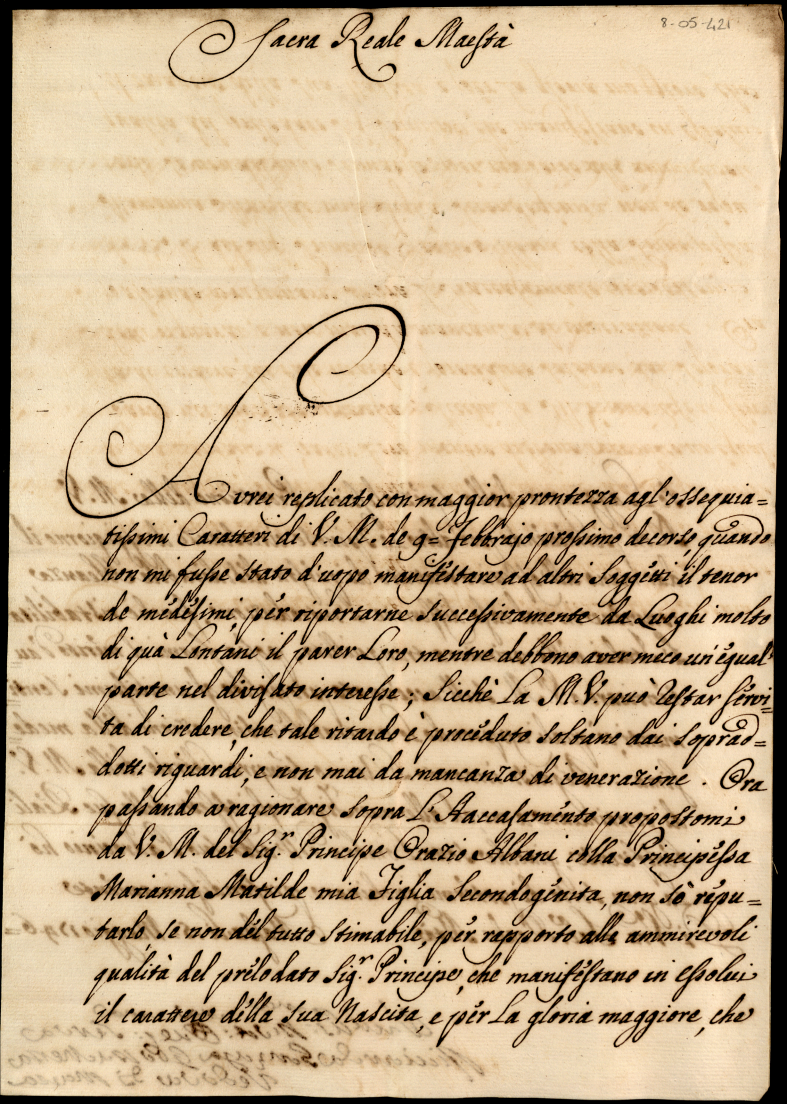 8-05-421
Sacra Reale Maestà
Avrei replicato con maggior prontezza agl'ossequia=
tissimi Caratteri di V. M. de 9= Febbrajo prossimo decorso, quando
non mi fusse stato d'uopo manifestare ad altri Soggetti il tenor
de medesimi per riportarne successivamente da Luoghi molto
di quà Lontani il parer Loro, mentre debbono aver meco un'egual
parte nel divisato interesse; Sicchè La M. V. può restar servi=
ta di credere, che tale ritardo è proceduto soltano dai soprad=
dotti riguardi, e non mai da mancanza di venerazione. Ora
passando a ragionare sopra L'Accasamento propostomi
da V. M. del Sig.r Principe Orazio Albani colla Principessa
Marianna Matilde mia Figlia Secondogenita, non sò repu=
tarlo, se non del tutto stimabile, per rapporto alle ammirevoli
qualità del prelodato Sig.r Principe, che manifestano in essolui
il carattere della sua Nascita, e per La gloria maggiore, che